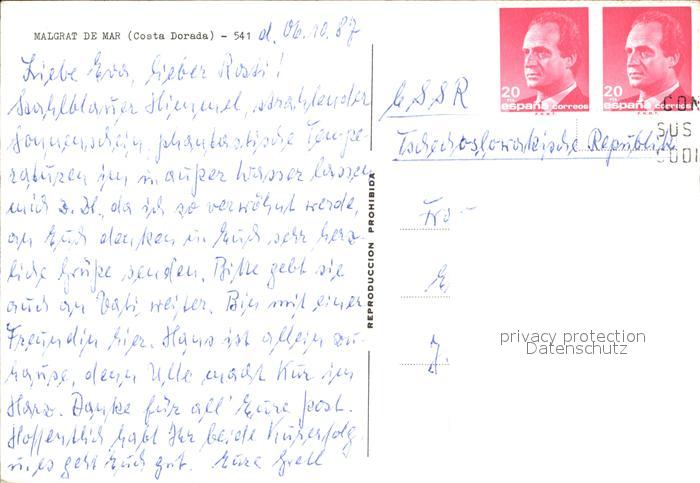 MALGRAT DE MAR (Costa Dorada) - 541 d. 06.10.87
Liebe Eva, lieber Rossi!
Strahlblauer Himmel, strahlender
Sonnenschein, phantastische Tempe-
raturen im u. außer Wasser lassen
mich z. Zt., da ich so verwöhnt werde,
an Euch denken u. Euch sehr herz-
liche Grüße senden. Bitte gebt sie
auch an Vati weiter. Bin mit einer
Freundin hier. Hans ist allein zu-
hause, denn Ulle macht Kur im
Harz. Danke für all' Eure Post.
Hoffentlich habt Ihr beide Kurerfolg
u. es geht Euch gut. Eure Gretl
REPRODUCCION PROHIBIDA
20
españa correos
F.N.M.T.
20
españa correos
F.N.M.T.
CON
SUS
CODI
ČSSR
Tschechoslowakische Republik
Fr
E
J.
privacy protection
Datenschutz